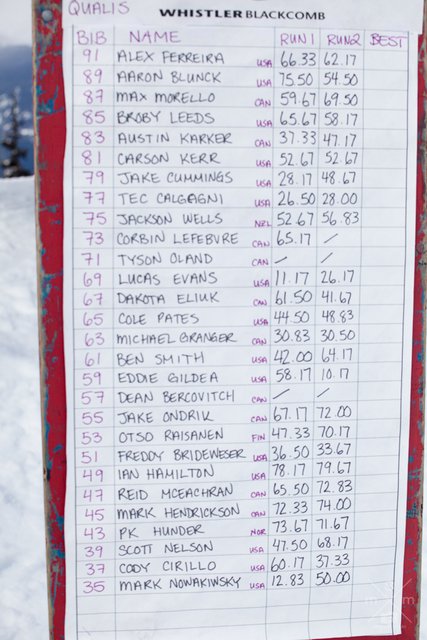 QUALIS WHISTLER BLACKCOMB
BIB NAME RUN 1 RUN 2 BEST
91 ALEX FERREIRA USA 66.33 62.17
89 AARON BLUNCK USA 75.50 54.50
87 MAX MORELLO CAN 59.67 69.50
85 BROBY LEEDS USA 65.67 58.17
83 AUSTIN KARKER CAN 37.33 47.17
81 CARSON KERR USA 52.67 52.67
79 JAKE CUMMINGS USA 28.17 48.67
77 TEC CALGAGNI USA 26.50 28.00
75 JACKSON WELLS NZL 52.67 56.83
73 CORBIN LEFEBVRE CAN 65.17 /
71 TYSON OLAND CAN / /
69 LUCAS EVANS USA 11.17 26.17
67 DAKOTA ELIUK CAN 61.50 41.67
65 COLE PATES USA 44.50 48.83
63 MICHAEL GRANGER CAN 30.83 30.50
61 BEN SMITH USA 42.00 64.17
59 EDDIE GILDEA USA 58.17 10.17
57 DEAN BERCOVITCH CAN / /
55 JAKE ONDRIK CAN 67.17 72.00
53 OTSO RAISANEN FIN 47.33 70.17
51 FREDDY BRIDEWESER USA 36.50 33.67
49 IAN HAMILTON USA 78.17 79.67
47 REID MCEACHRAN CAN 65.50 72.83
45 MARK HENDRICKSON CAN 72.33 74.00
43 PK HUNDER NOR 73.67 71.67
39 SCOTT NELSON USA 47.50 68.17
37 CODY CIRILLO USA 60.17 37.33
35 MARK NOWAKIWSKY USA 12.83 50.00